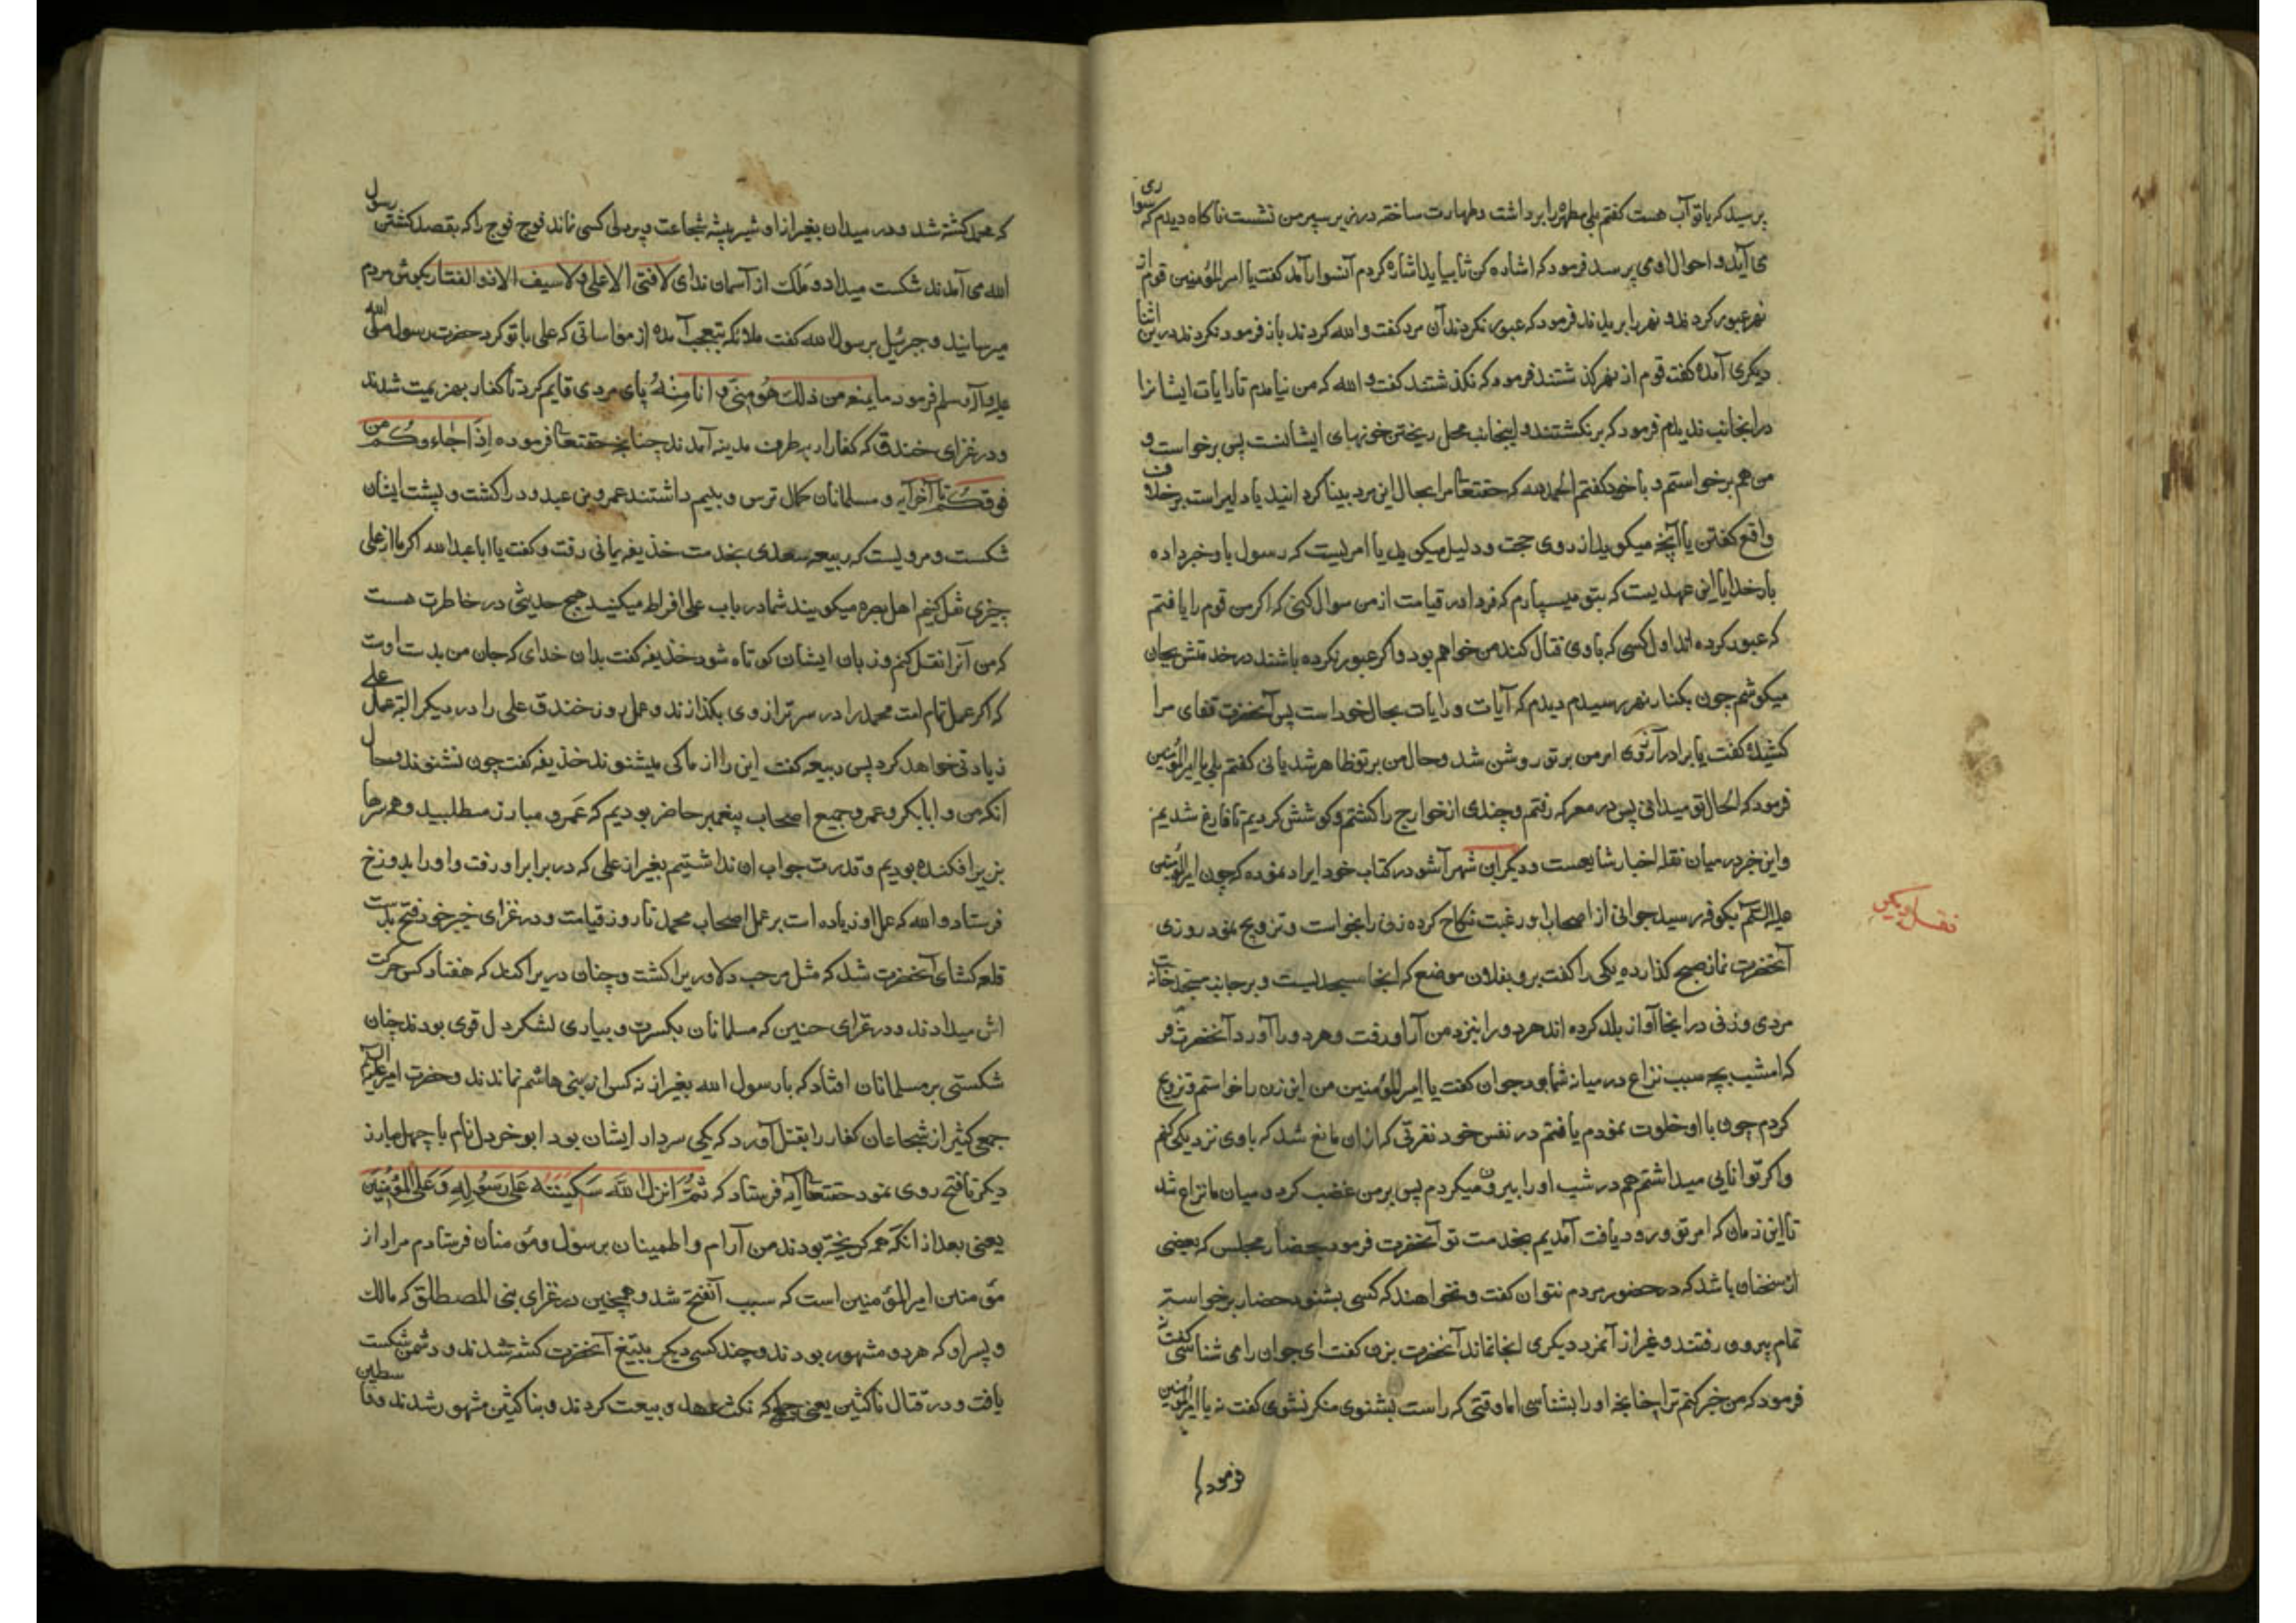 پرسید که با تو آب هست گفتم بلی مطهره را برداشت و طهارت ساخته در زیر سپر من نشست ناکاه دیدم که سواری
می آید و احوال او می پرسد فرمود که اشاده کن تا بیاید اشاره کردم آنسوار آمد کفت یا امیر المؤمنین قوم از
نهر عبور کردند و نهر را بریدند فرمود که عبور نکردند آن مرد کفت والله کردند باز فرمود نکردند درین اثنا
دیکری آمده کفت قوم از نهر کذشتند فرمود که نکذشتند کفت والله که من نیامدم تا رایات ایشانرا
در انجانب ندیدم فرمود که برنکشتند و اینجانب محل ریختن خونهای ایشانست پس برخواست و
من هم برخواستم و با خود کفتم الحمد لله که حقتعالی مرا بحال این مرد بینا کردانید یا دلیر است بر خلاف
واقع کفتن یا آنچه میکوید از روی حجت و دلیل میکوید یا امریست که رسول باو خبر داده
بار خدایا این عهدیست که بتو میسپارم که فردا در قیامت از من سوال کنی که اکر من قوم را یافتم
که عبور کرده اند اول کسی که با وی قتال کند من خواهم بود و اکر عبور نکرده باشند در خدمتش بجان
میکوشم چون بکنار نهر رسیدم دیدم که آیات و رایات بحال خود است پس آنحضرت قفای مرا
کشیده کفت یا برادر آزدی امر من بر تو روشن شد و حال من بر تو ظاهر شد یا نی کفتم بلی یا امیر المؤمنین
فرمود که الحال تو میدانی پس در معرکه رفتم و چندی از خوارج را کشتم و کوشش کردیم تا فارغ شدیم
و این خبر در میان نقله اخبار شایعست و دیکر ابن شهر آشو در کتاب خود ایراد نموده که چون امیر المؤمنین
علیه السلم بکوفه رسید جوانی از اصحاب او رغبت نکاح کرده زنی را بخواست و تزویج نمود روزی
نقل دیکر
آنحضرت نماز صبح کذارده یکی را کفت برو بفلان موضع که انجا مسجدیست و بر جانب مسجد خانه است
مردی و زنی در انجا آواز بلند کرده اند هر دو را بنزد من آر او رفت و هر دو را آورد آنحضرت فر
که امشب بچه سبب نزاع در میانه شما بود جوان کفت یا امیر المؤمنین من این زن را خواستم و تزویج
کردم چون با او خلوت نمودم یافتم در نفس خود نفرتی که از ان مانع شد که با وی نزدیکی کنم
و اکر توانایی میداشتم هم در شب او را بیرون میکردم پس بر من غضب کرد و میان ما نزاع شد
تا این زمان که امر تو ورود یافت آمدیم بخدمت تو آنحضرت فرمود بحضار مجلس که بعضی
از سخنان باشد که در حضور مردم نتوان کفت و نخواهند که کسی بشنود حضار برخواسته
تمام بیرون رفتند و غیر از آنمرد دیکری انجا نماند آنحضرت بزن کفت ای جوان را می شناسی کفت نه
فرمود که من خبر کنم ترا چنانچه او را بشناسی اما وقتی که راست بشنوی منکر نشوی کفت نه یا امیر المؤمنین
فرمود که
که محمد کشته شد و در میدان بغیر از او شیر بیشه شجاعت و پردلی کسی نماند فوج فوج را که بقصد کشتن رسول
الله می آمدند شکست میداد و ملک از آسمان ندای لا فتی الا علی و لا سیف الا ذو الفقار بکوش مردم
میرسانید و جبرئیل برسول الله کفت ملائکه بتعجب آمده از مواساتی که علی با تو کرد حضرت رسول صلی الله
علیه و آله و سلم فرمود ما یمنعه من ذلك هُوَ مِنّی وَ انا مِنْهُ پای مردی قایم کرد تا کفار بهزیمت شدند
و در غزای خندق که کفار از هر طرف مدینه آمدند چنانچه حقتعالی فرموده اِذ جٰاءوکُم مِن
فوقِکُم تا آخر آیه و مسلمانان کمال ترس و بیم داشتند عمرو بن عبدود را کشت و پشت ایشان
شکست و مرویست که ربیعه سعدی بخدمت خذیفه یمانی رفت و کفت یا ابا عبدالله اکر ما از علی
چیزی نقل کنیم اهل بصره میکویند شما در باب علی افراط میکنید هیچ حدیثی در خاطرت هست
که من آنرا نقل کنم و زبان ایشان کوتاه شود خذیفه کفت بدان خدای که جان من بدست اوست
که اکر عمل تمام امت محمد را در سر ترازوی بکذارند و عمل روز خندق علی را در دیکر البته عمل علی
زیادتی خواهد کرد پس ربیعه کفت این را از ما کی میشنوند خذیفه کفت چون نشنوند و حال
انکه من و ابابکر و عمر و جمیع اصحاب پیغمبر حاضر بودیم که عَمرو مبارز مسطلبید و همه سرها
بزیر افکنده بودیم و قدرت جواب ان نداشتیم بغیر از علی که در برابر او رفت و او را بدوزخ
فرستاد والله که عمل او زیاده است بر عمل اصحاب محمد تا روز قیامت و در غزای خیبر خود فتح بدست
قلعه کشای آنحضرت شد که مثل مرحب دلاوریرا کشت و چنان دریرا کند که هفتاد کس حرکت
اش میدادند و در غزای حنین که مسلمانان بکسرت و بسیاری لشکر دل قوی بودند چنان
شکستی بر مسلمانان افتاد که با رسول الله بغیر از نه کس از بنی هاشم نماندند و حضرت امیر علیه السلم
جمعی کثیر از شجاعان کفار را بقتل آورد که یکی سردار ایشان بود ابو خردل نام با چهل مبارز
دیکر تا فتح روی نمود حقتعالی آیه فرستاد که ثُمَّ اَنزَلَ اللّٰه سَکینَتَهُ عَلیٰ رَسُولِهِ وَ عَلَی المُؤْمِنینَ
یعنی بعد از انکه همه کریخته بودند من آرام و اطمینان بر سول و مؤمنان فرستادم مراد از
مؤمنین امیر المؤمنین است که سبب آنفتح شد و همچنین در غزای بنی المصطلق که مالک
و پسر او که هر دو مشهور بودند و چند کسی دیکر بتیغ آنحضرت کشته شدند و دشمن شکست
یافت و در قتال ناکثین یعنی جمعی که نکث عهد و بیعت کردند و بناکثین مشهور شدند و قاسطین